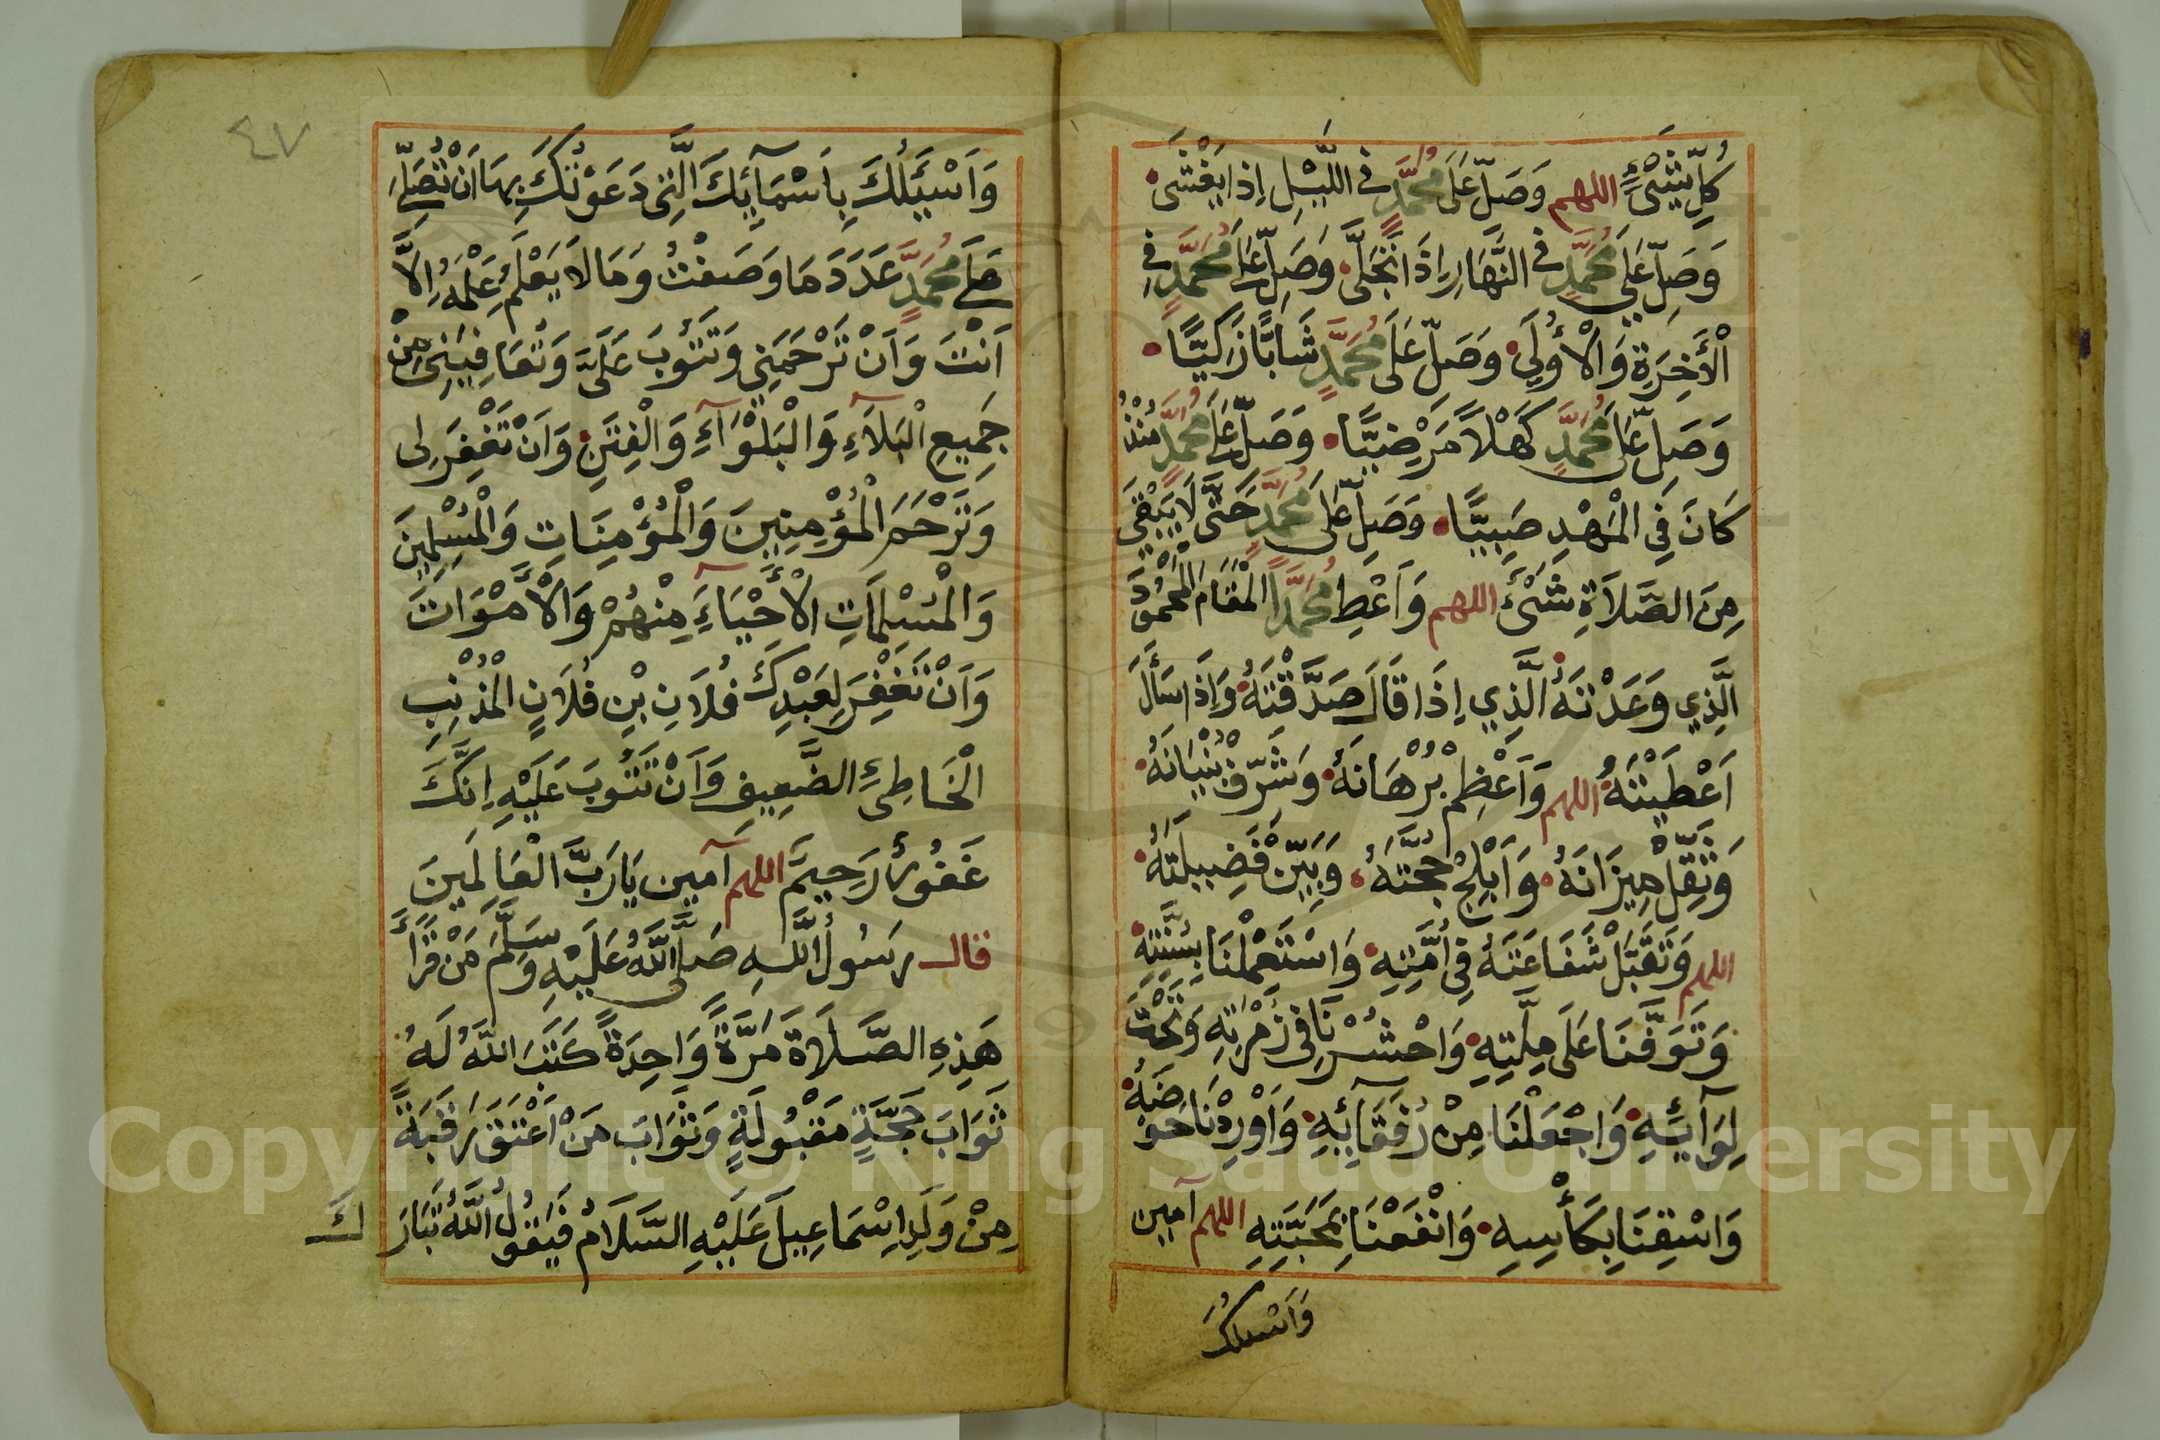 كُلِّ شَيْءٍ اللهم وَصَلِّ عَلَى مُحَمَّدٍ فِي اللَّيْلِ إِذَا يَغْشَى
وَصَلِّ عَلَى مُحَمَّدٍ فِي النَّهَارِ إِذَا تَجَلَّى وَصَلِّ عَلَى مُحَمَّدٍ فِي
الْأَخِرَةِ وَالْأُولَى وَصَلِّ عَلَى مُحَمَّدٍ شَابًّا زَكِيًّا
وَصَلِّ عَلَى مُحَمَّدٍ كَهْلًا مَرْضِيًّا وَصَلِّ عَلَى مُحَمَّدٍ مُنْذُ
كَانَ فِي الْمَهْدِ صَبِيًّا وَصَلِّ عَلَى مُحَمَّدٍ حَتَّى لَا يَبْقَى
مِنَ الصَّلَاةِ شَيْءٌ اللهم وَأَعْطِ مُحَمَّدًا الْمَقَامَ الْمَحْمُودَ
الَّذِي وَعَدْتَهُ الَّذِي إِذَا قَالَ صَدَّقْتَهُ وَإِذَا سَأَلَ
أَعْطَيْتَهُ اللهم وَأَعْظِمْ بُرْهَانَهُ وَشَرِّفْ بُنْيَانَهُ
وَثَقِّلْ مِيزَانَهُ وَأَبْلِجْ حُجَّتَهُ وَبَيِّنْ فَضِيلَتَهُ
اللهم وَتَقَبَّلْ شَفَاعَتَهُ فِي أُمَّتِهِ وَاسْتَعْمِلْنَا بِسُنَّتِهِ
وَتَوَفَّنَا عَلَى مِلَّتِهِ وَاحْشُرْنَا فِي زُمْرَتِهِ وَتَحْتَ
لِوَآئِهِ وَاجْعَلْنَا مِنْ رُفَقَآئِهِ وَأَوْرِدْنَا حَوْضَهُ
وَاسْقِنَا بِكَأْسِهِ وَانْفَعْنَا بِمَحَبَّتِهِ اللهم آمين
وَاسئلك
٤٧
وَاَسْئَلُكَ بِاَسْمَآئِكَ الَّتِي دَعَوْتُكَ بِهَا اَنْ تُصَلِّيَ
عَلَى مُحَمَّدٍ عَدَدَ مَا وَصَفْتُ وَمَا لَا يَعْلَمُ عِلْمَهُ اِلَّا
اَنْتَ وَاَنْ تَرْحَمَنِي وَتَتُوبَ عَلَيَّ وَتُعَافِيَنِي مِنْ
جَمِيعِ الْبَلَآءِ وَالْبَلْوَآءِ وَالْفِتَنِ وَاَنْ تَغْفِرَ لِى
وَتَرْحَمَ الْمُؤْمِنِينَ وَالْمُؤْمِنَاتِ وَالْمُسْلِمِينَ
وَالْمُسْلِمَاتِ الْأَحْيَآءِ مِنْهُمْ وَالْأَمْوَاتَ
وَاَنْ تَغْفِرَ لِعَبْدِكَ فُلَانِ بْنِ فُلَانٍ الْمُذْنِبِ
الْخَاطِئِ الضَّعِيفِ وَاَنْ تَتُوبَ عَلَيْهِ اِنَّكَ
غَفُورٌ رَحِيمٌ اللهم آمين يَا رَبَّ الْعَالَمِينَ
قال رَسُولُ اللَّهِ صَلَّى اللَّهُ عَلَيْهِ وَسَلَّمَ مَنْ قَرَأَ
هَذِهِ الصَّلَاةَ مَرَّةً وَاحِدَةً كَتَبَ اللهُ لَهُ
ثَوَابَ حَجَّةٍ مَقْبُولَةٍ وَثَوَابَ مَنْ أَعْتَقَ رَقَبَةً
مِنْ وَلَدِ اِسْمَاعِيلَ عَلَيْهِ السَّلَامُ فَيَقُولُ اللهُ تَبَارَكَ
Copyright © King Saud University